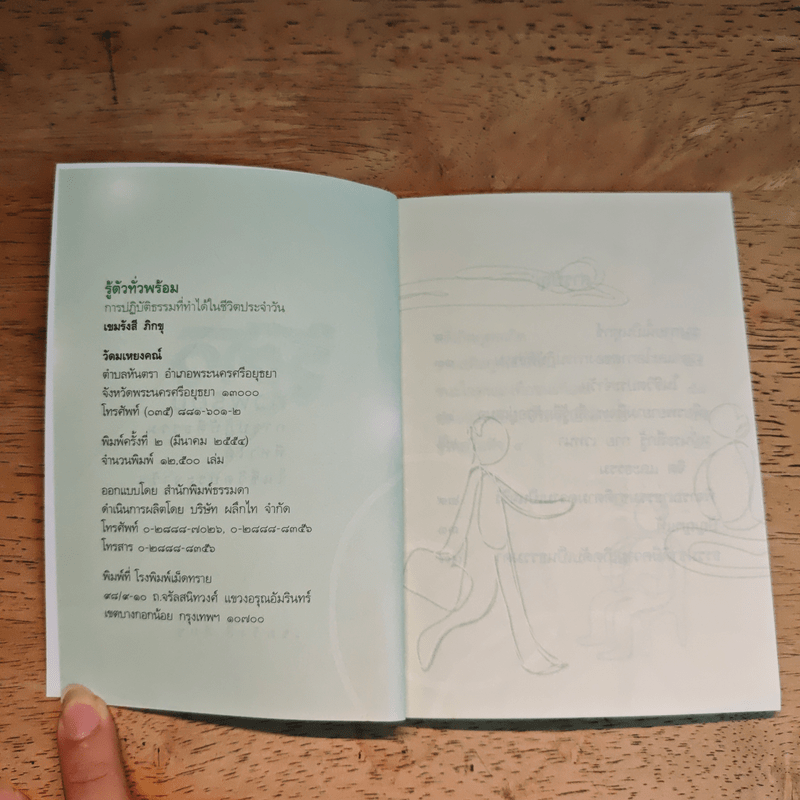 รู้ตัวทั่วพร้อม
การปฏิบัติธรรมที่ทำได้ในชีวิตประจำวัน
เขมรังสี ภิกขุ
วัดมเหยงคณ์
ตำบลหันตรา อำเภอพระนครศรีอยุธยา
จังหวัดพระนครศรีอยุธยา ๑๓๐๐๐
โทรศัพท์ (๐๓๕) ๘๘๑-๖๐๑-๒
พิมพ์ครั้งที่ ๒ (มีนาคม ๒๕๕๔)
จำนวนพิมพ์ ๑๒,๕๐๐ เล่ม
ออกแบบโดย สำนักพิมพ์ธรรมดา
ดำเนินการผลิตโดย บริษัท ผลึกไท จำกัด
โทรศัพท์ ๐-๒๘๘๘-๗๐๒๖, ๐-๒๘๘๘-๘๓๕๖
โทรสาร ๐-๒๘๘๘-๘๓๕๖
พิมพ์ที่ โรงพิมพ์เม็ดทราย
๙๘/๙-๑๐ ถ.จรัลสนิทวงศ์ แขวงอรุณอัมรินทร์
เขตบางกอกน้อย กรุงเทพฯ ๑๐๗๐๐